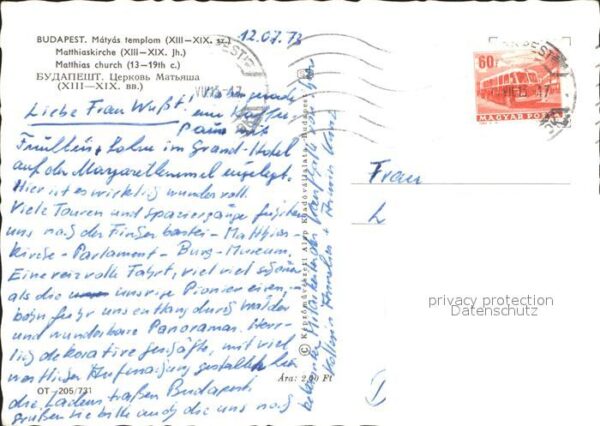 BUDAPEST. Mátyás templom (XIII—XIX. sz.)
Matthiaskirche (XIII—XIX. Jh.)
Matthias church (13—19th c.)
БУДАПЕШТ. Церковь Матьяша
(XIII—XIX. вв.)
12.07.73
Liebe Frau Wußt! haben gerade
eine Kaffee-
Pause mit
Fräulein im Grand-Hotel
auf der Margaretheninsel eingelegt.
Hier ist es wirklich wundervoll.
Viele Touren und Spaziergänge führten
uns nach der Fischerbastei - Matthias-
kirche - Parlament - Burg - Museum.
Eine reizvolle Fahrt, viel viel schöner
als die unsrige Pioniereisen-
bahn fuhr uns entlang durch Wälder
und wunderbare Panoramas. Herr-
lich dekorative Geschäfte, mit viel
Aufmachung gestalten sich
die Ladenstraßen Budapest
grüßen Sie bitte auch die uns noch
bekannten Mitarbeiter der
Képzőművészeti Alap Kiadóvállalata, Budapest
Ára: 2,— Ft
OT—205/731
60
MAGYAR POSTA
Frau
L
privacy protection
Datenschutz